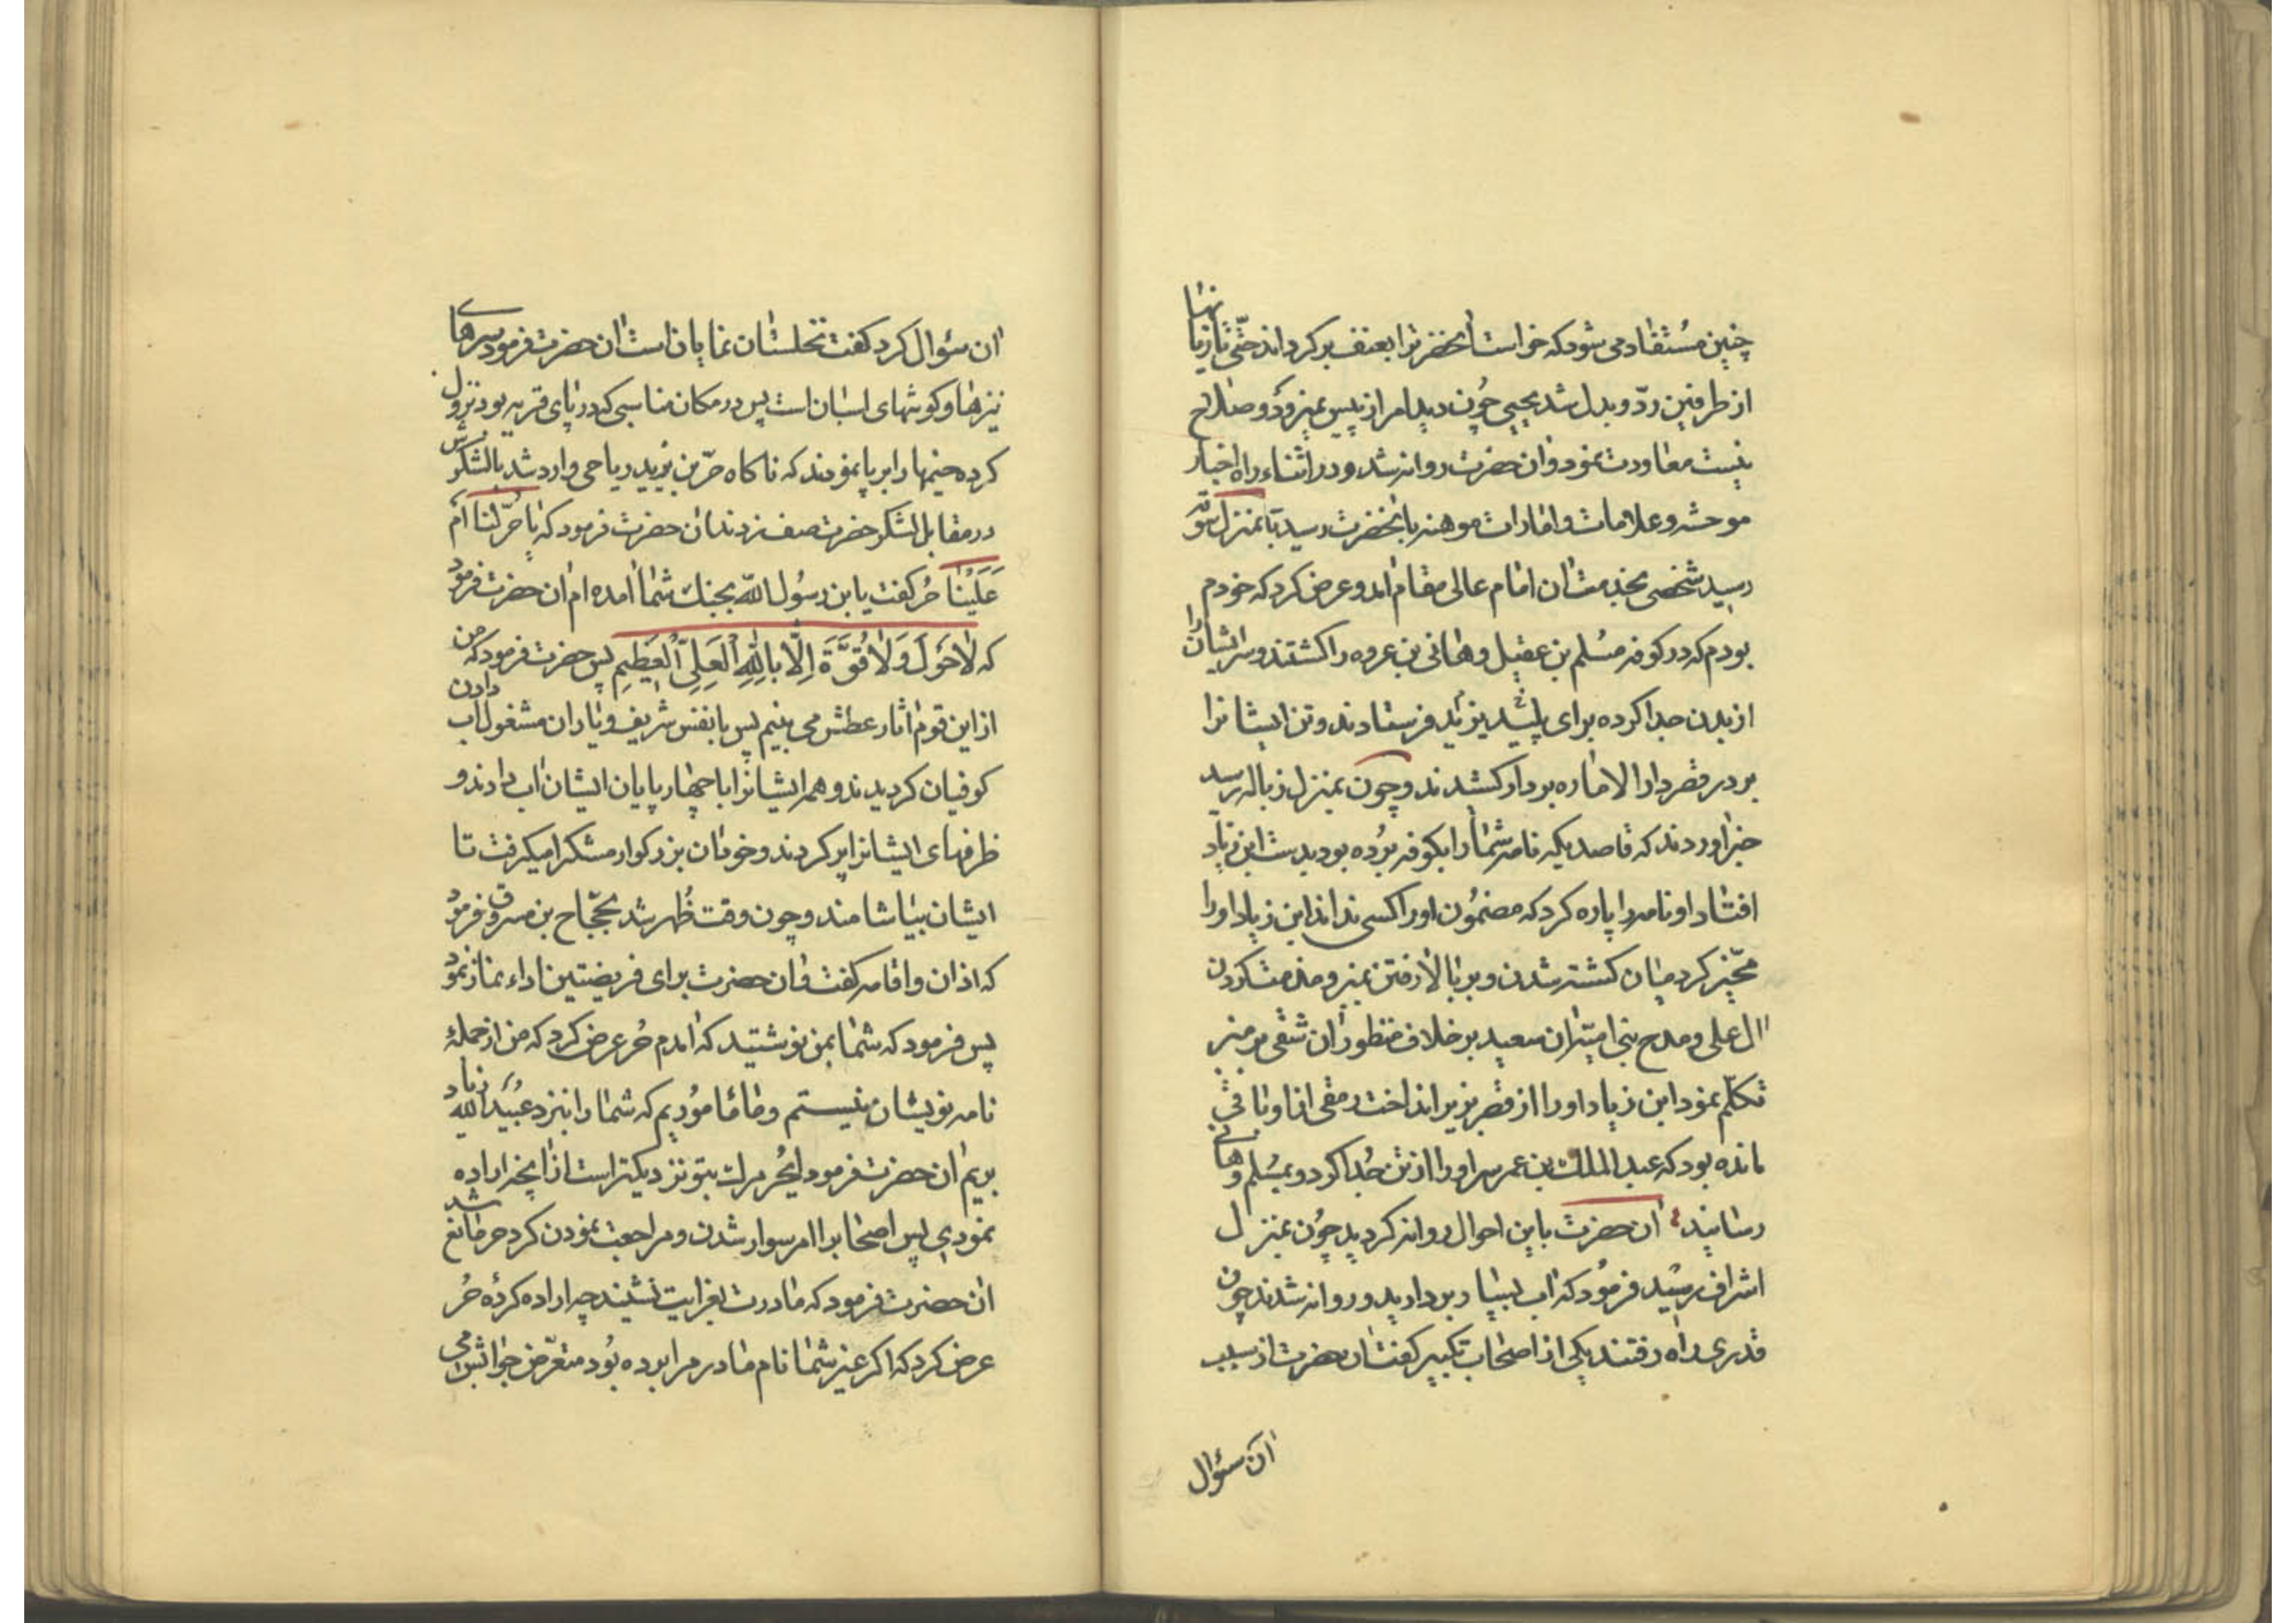 چنین مستفاد می شود که خواست آنحضرترا بعنف برگرداند حتّی تازیانها
از طرفین ردّ و بدل شد یحیی چون دید امر از پیش نمیرود و صلاح
نیست معاودت نمود و آن حضرت روانه شد و در اثناء راه اخبار
موحشه و علامات و امارات موهنه بآنحضرت رسید تا بمنزل سوقه
رسید شخصی بخدمت آن امام عالی مقام آمد و عرض کرد که خودم
بودم که در کوفه مسلم بن عقیل و هانی بن عروه را کشتند و سر ایشان را
از بدن جدا کرده برای پلید یزید فرستادند و تن ایشانرا
بر در قصر دار الاماره بردار کشیدند و چون بمنزل زباله رسید
خبر آوردند که قاصدیکه نامه شما را بکوفه برده بود بدست ابن زیاد
افتاد او نامه را پاره کرد که مضمون اورا کسی نداند ابن زیاد اورا
مخیّر کرد میان کشته شدن و بر بالا رفتن منبر و مذمت کردن
آل علی و مدح بنی امیّه آن سعید بر خلاف منظور آن شقی بر منبر
تکلّم نمود ابن زیاد اورا از قصر بزیر انداخت رمقی از او باقی
مانده بود که عبد الملک بن عمر سر اورا از تن جدا کرد و بمسلم و هانی
رسانید آن حضرت باین احوال روانه گردید چون بمنزل
اشراف رسید فرمود که آب بسیار بردارید و روانه شدند چون
قدری راه رفتند یکی از اصحاب تکبیر گفت آن حضرت از سبب
آن سؤال
آن سؤال کرد گفت نخلستان نمایان است آن حضرت فرمود سرهای
نیزها و گوشهای اسبان است پس در مکان مناسبی که در پای قریه بود نزول
کرده خیمها را برپا نمودند که ناگاه حرّ بن یزید ریاحی وارد شد با لشکرش
در مقابل لشکر حضرت صف زدند آن حضرت فرمود که یا حرّ لنا أم
عَلَیْنَا حر گفت یا بن رسول الله بجنگ شما آمده ام آن حضرت فرمود
که لَا حَوْلَ وَلَا قُوَّةَ اِلَّا بِاللّٰهِ الْعَلِیِّ الْعَظِیمِ پس حضرت فرمود که من
از این قوم آثار عطش می بینم پس با نفس شریف و یاران مشغول آب دادن
کوفیان گردیدند و همه ایشانرا با چهار پایان ایشان آب دادند و
ظرفهای ایشانرا پر کردند و خود آن بزرگوار مشکرا میگرفت تا
ایشان بیاشامند و چون وقت ظهر شد بحجّاج بن مسروق فرمود
که اذان و اقامه گفت و آن حضرت برای فریضتین اداء نماز نمود
پس فرمود که شما بمن نوشتید که آمدم حر عرض کرد که من از جملهٔ
نامه نویسان نیستم و ما مأموریم که شما را بنزد عبید الله زیاد
بریم آن حضرت فرمود ایحر مرگ بتو نزدیکتر است از آنچه اراده
نمودی پس اصحابرا امر سوار شدن و مراجعت نمودن کرد حر مانع شد
آن حضرت فرمود که مادرت بعزایت نشیند چه اراده کردهٔ حر
عرض کرد که اگر غیر شما نام مادر مرا برده بود متعرّض جوابش می